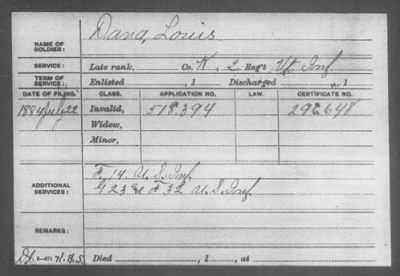 NAME OF SOLDIER: Dana, Louis
SERVICE: Late rank, Co. K, 2 Reg't Vt Inf.
TERM OF SERVICE: Enlisted , 1 Discharged , 1
DATE OF FILING. CLASS. APPLICATION NO. LAW. CERTIFICATE NO.
1884 July 22 Invalid, 518.394 296.648
Widow,
Minor,
ADDITIONAL SERVICES: F, 14, U.S. Inf.
G 23 & F 32 U.S. Inf.
REMARKS:
Died , 1 , at